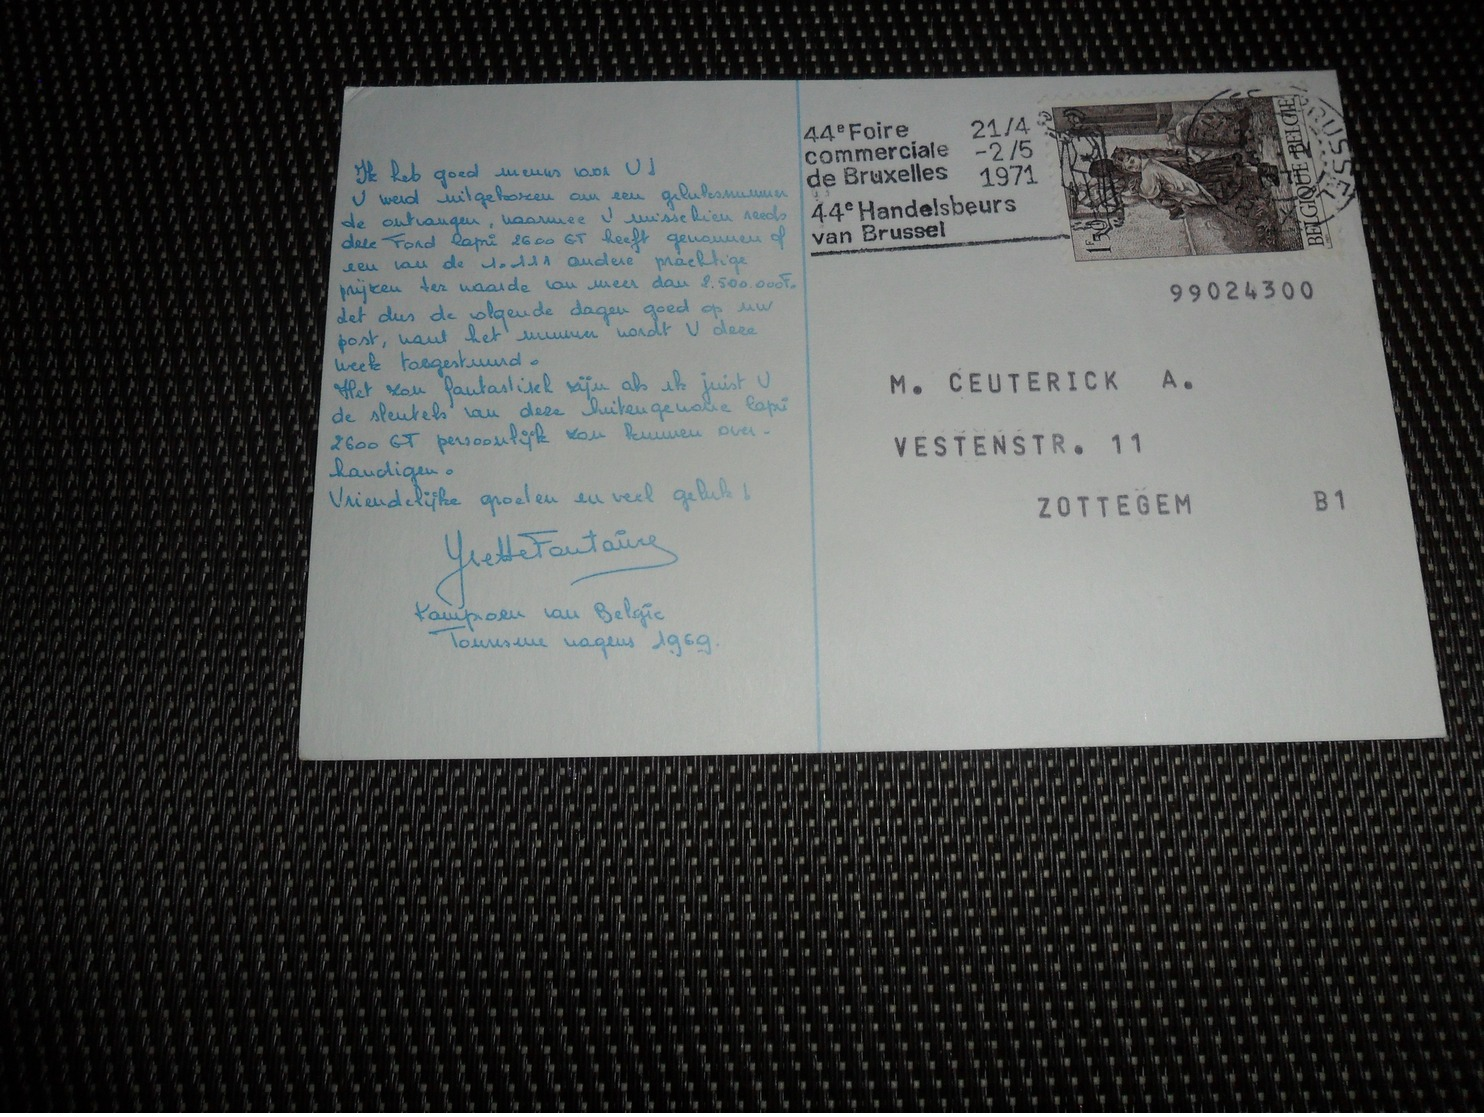 Ik heb goed nieuws voor U !
U werd uitgekozen om een geluksnummer
te ontvangen, waarmee U misschien reeds
deze Ford Capri 2600 GT heeft gewonnen of
een van de 1.111 andere prachtige
prijzen ter waarde van meer dan 2.500.000F.
Let dus de volgende dagen goed op uw
post, want het nummer wordt U deze
week toegestuurd.
Het zou fantastisch zijn als ik juist U
de sleutels van deze buitengewone Capri
2600 GT persoonlijk zou kunnen over-
handigen.
Vriendelijke groeten en veel geluk !
Yvette Fontaine
Kampioen van België
Tourisme wagens 1969.
44e Foire 21/4
commerciale -2/5
de Bruxelles 1971
44e Handelsbeurs
van Brussel
1F50
BELGIQUE BELGIE
99024300
M. CEUTERICK A.
VESTENSTR. 11
ZOTTEGEM B1